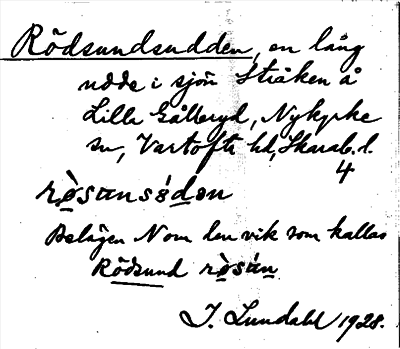 Rödsundsudden, en lång
udde i sjön Stråken å
Lilla Gålleryd, Nykyrke
sn, Vartofta hd, Skarab. l.
4
rɵ̀sunsɵ́dən
Belägen N om den vik som kallas
Rödsund rɵ̀sún
J. Lundahl 1928.